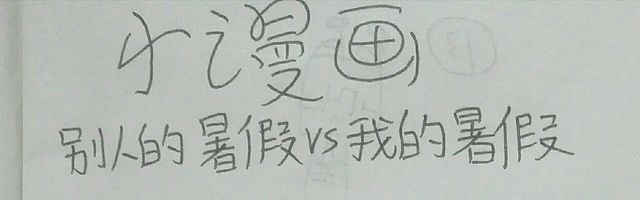 小漫画
别人的暑假vs我的暑假